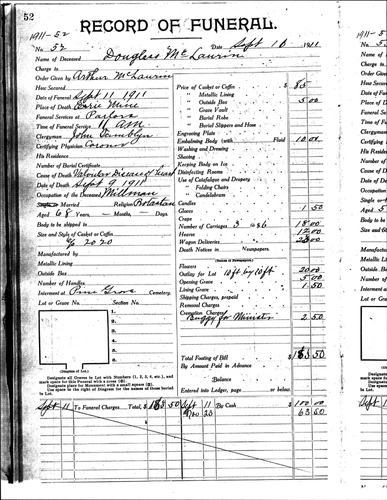 52
1911-52
RECORD OF FUNERAL.
No. 52 Date Sept 10 1911
Name of Deceased Douglass McLaurin
Charge to
Order Given by Arthur McLaurin
How Secured
Date of Funeral Sept 11 1911
Place of Death Mine
Funeral Services at Parlors
Time of Funeral Service 10 AM
Clergyman John
Certifying Physician Coroner
His Residence
Number of Burial Certificate
Cause of Death Valvular Disease of Heart
Date of Death Sept 9 1911
Occupation of the Deceased Millman
Single or Married Religion Protestant
Aged 68 Years, - Months, - Days.
Body to be shipped to
Size and Style of Casket or Coffin
6/3 20 20
Manufactured by
Metallic Lining
Outside Box
Number of Handles
Interment at Pine Grove Cemetery.
Lot or Grave No. Section No.
1.
2.
3.
4.
5.
6.
(Diagram of Lot.)
Designate all Graves in Lot with Numbers (1, 2, 3, 4, etc.), and mark space for this Funeral with a cross
Designate place for Monument with a small square
Use space to the right of Diagram for the names of those buried in Lot.
Price of Casket or Coffin $ 85
" Metallic Lining
" Outside Box 5 00
" Grave Vault
" Burial Robe
" Burial Slippers and Hose
Engraving Plate
Embalming Body (with Fluid 10 00
Washing and Dressing
Shaving
Keeping Body on Ice
Disinfecting Rooms
Use of Catafalque and Drapery
" Folding Chairs
" Candelabrum
Candles
Gloves 1 50
Crape
Number of Carriages 3 @ 6 18 00
Hearse 12 00
Wagon Deliveries
Death Notices in Newspapers
(Names of Newspapers.)
Flowers
Outlay for Lot 10 ft by 10 ft 20 00
Opening Grave 5 00
Lining Grave 1 50
Shipping Charges, prepaid
Removal Charges
Cremation Charges
Buggy for Minister 2 50
Total Footing of Bill $ 163 50
By Amount Paid in Advance
Balance
Entered into Ledger, page or below.
Sept 11 To Funeral Charges Total, $ 163 50
Sept 11 By Cash $ 100 00
Nov 23 63 50
1911-5
No.
Name of
Charge